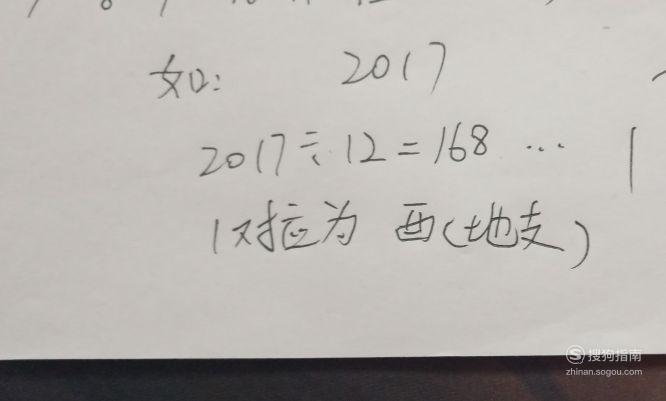 如: 2017
2017÷12=168 … 1
1对应为 酉(地支)
搜狗指南
zhinan.sogou.com